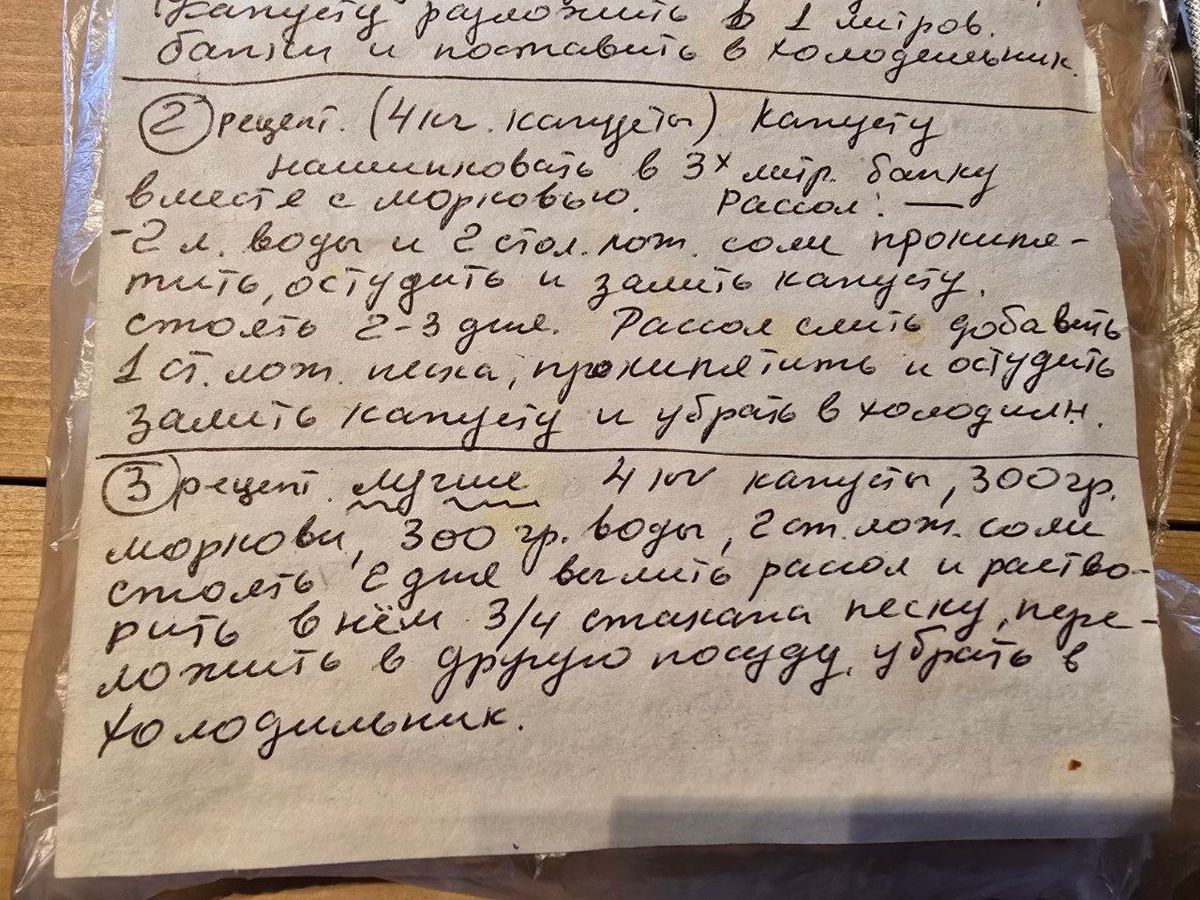 Капусту разложить в 1 литров.
банки и поставить в холодильник.
② рецепт. (4 кг. капусты) Капусту
нашинковать в 3х литр. банку
вместе с морковью. Рассол: —
-2 л. воды и 2 стол. лож. соли прокипя-
тить, остудить и залить капусту.
стоять 2-3 дня. Рассол слить добавить
1 ст. лож. песка, прокипятить и остудить
залить капусту и убрать в холодилн.
③ рецепт. лучше 4 кг капусты, 300 гр.
моркови, 300 гр. воды, 2 ст. лож. соли
стоять 2 дня вылить рассол и раство-
рить в нём 3/4 стакана песку, пере-
ложить в другую посуду. убрать в
холодильник.